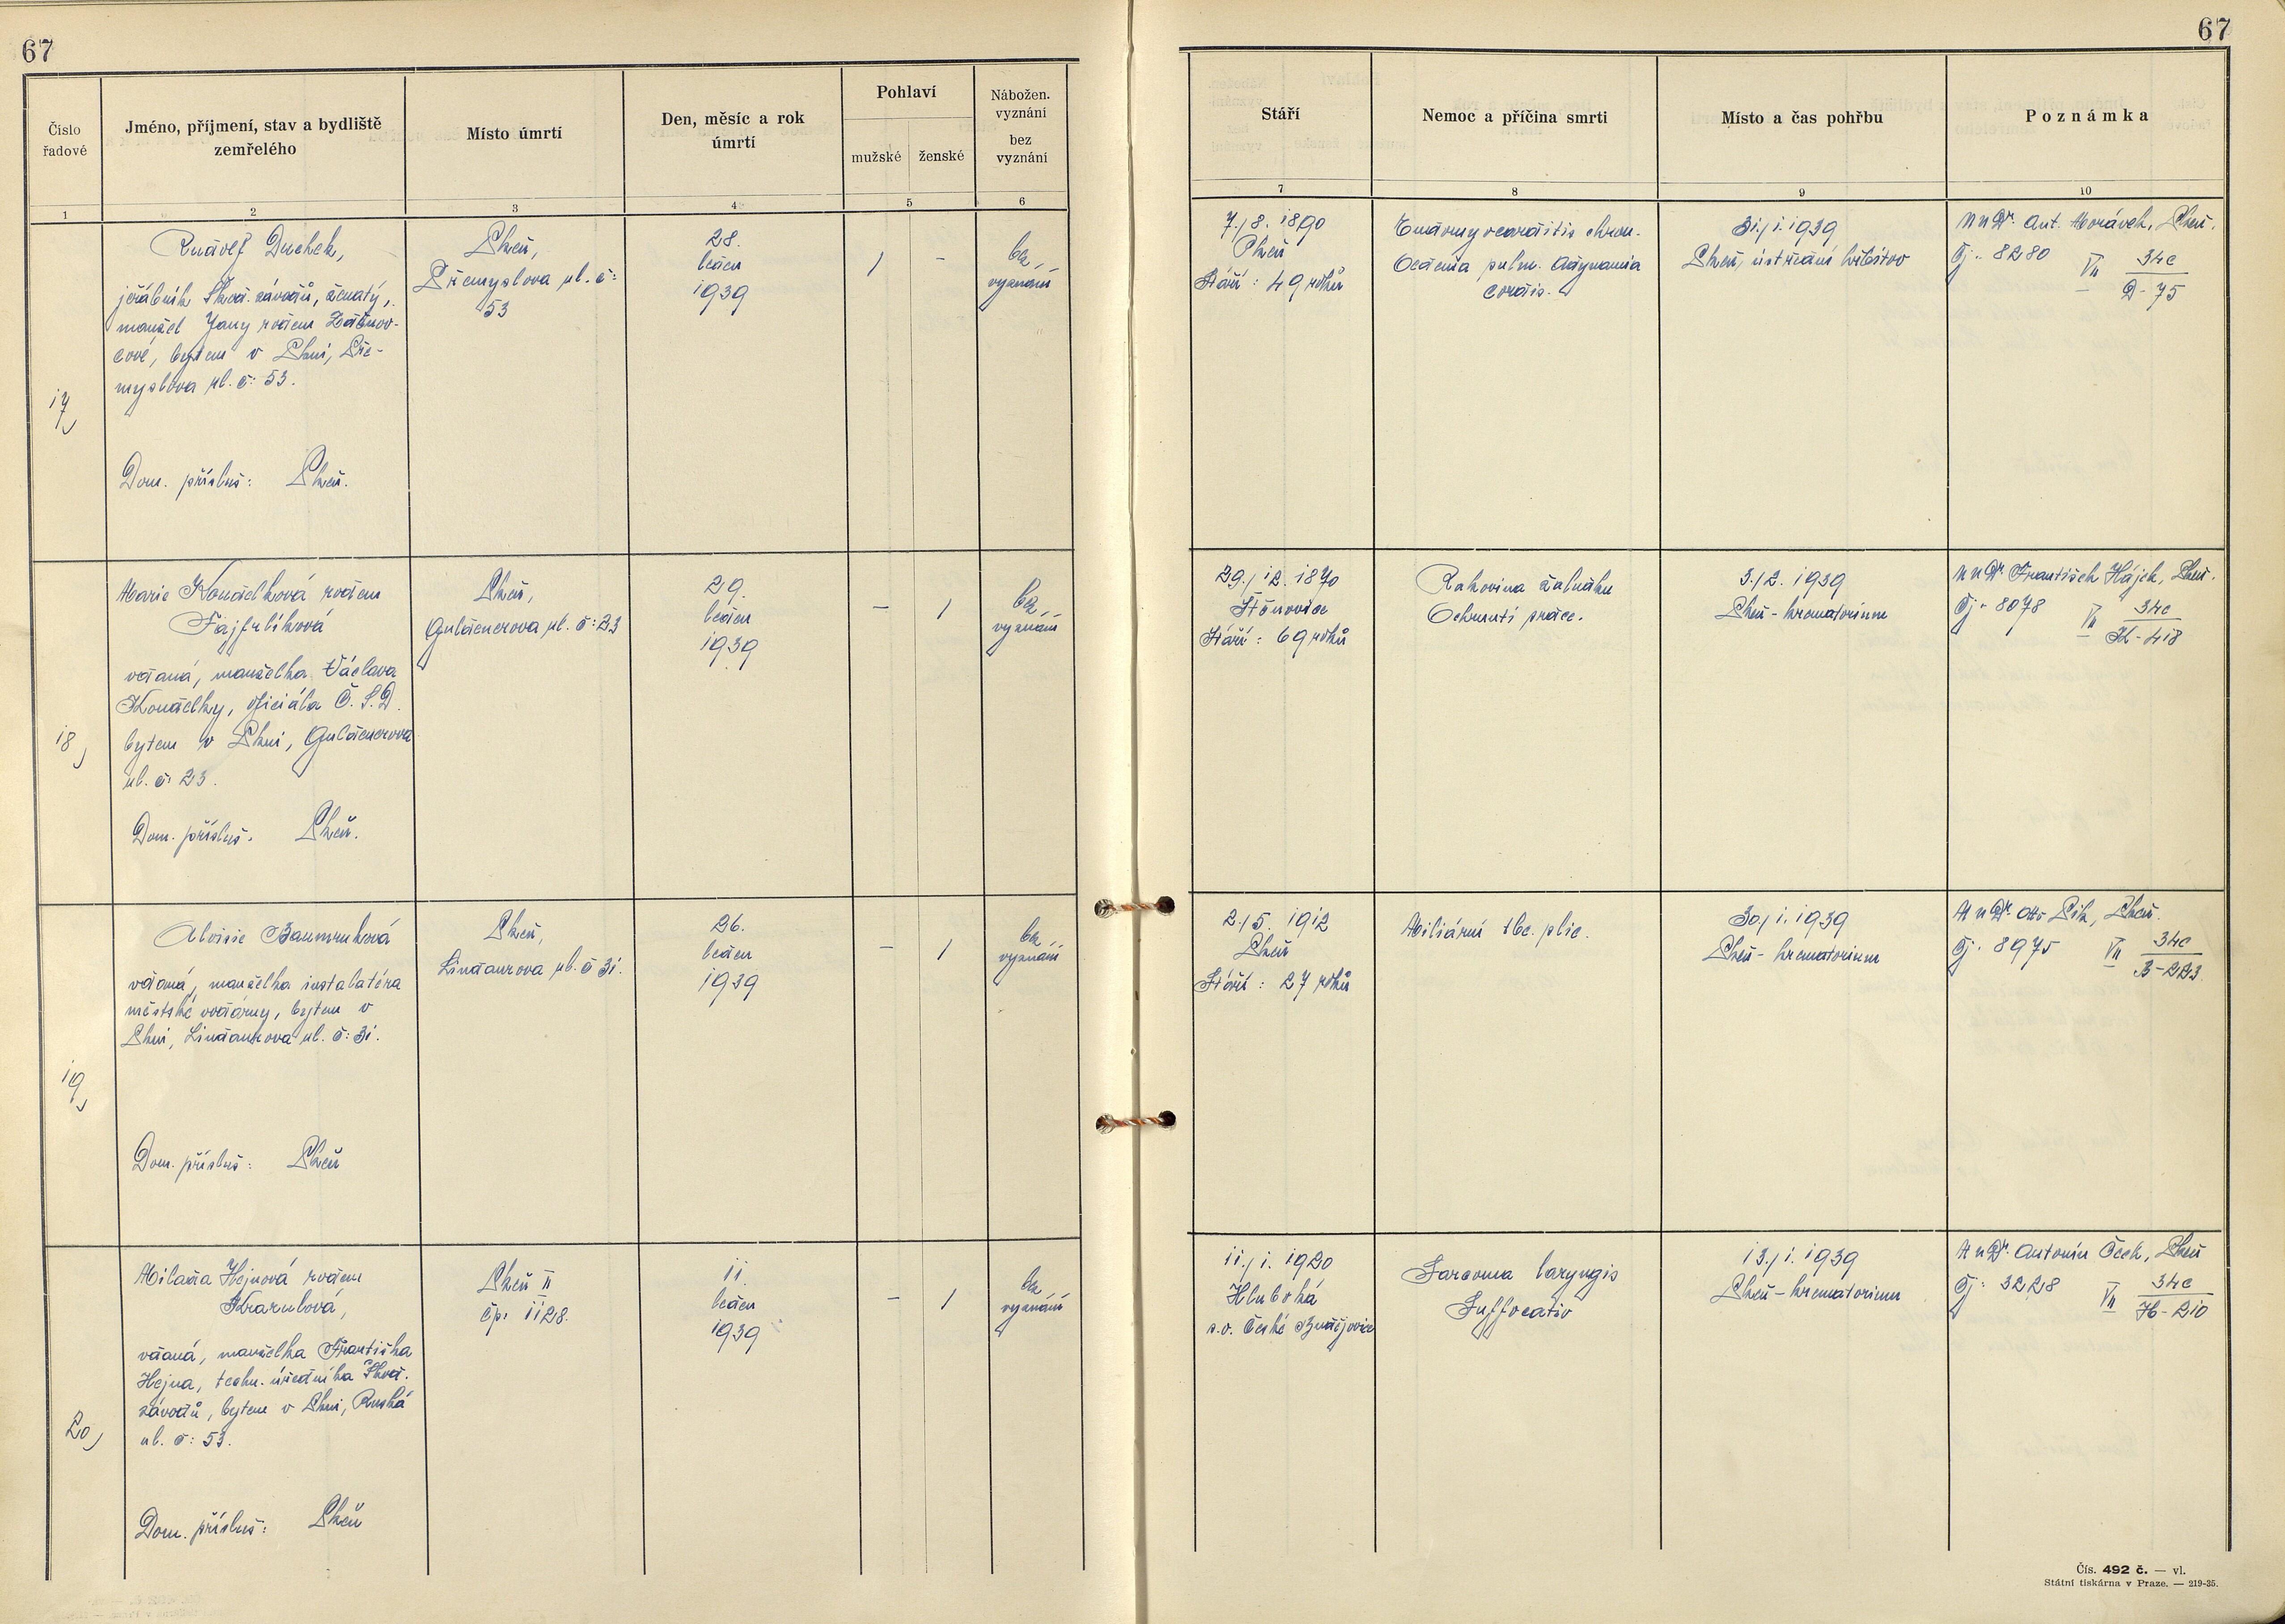 67
67
Číslo řadové
Jméno, příjmení, stav a bydliště zemřelého
Místo úmrtí
Den, měsíc a rok úmrtí
Pohlaví
mužské
ženské
Nábožen. vyznání
bez vyznání
Stáří
Nemoc a příčina smrti
Místo a čas pohřbu
Poznámka
1
2
3
4
5
6
7
8
9
10
17
Rudolf Duchek,
jeřábník Škod. závodů, ženatý,
manžel Jany rozen
cové, bytem v Plzni, Pře-
myslova ul. č: 53.
Dom. přísluš: Plzeň.
Plzeň,
Přemyslova ul. č:
53
28.
leden
1939
/
-
bez
vyznání
7./8. 1890
Plzeň
Stáří: 49 roků
Endomyocarditis chron.
Oedema pulm. Adynamia
cordis.
31./1. 1939
Plzeň, ústřední hřbitov
MUDr. Ant. Morávek, Plzeň.
Čj. 8280 VII 34c
D-75
18
Marie Kondelková rozen
Fajfrlíková
vdaná, manželka Václava
Kondelky, oficiála Č.S.D.
bytem v Plzni, Guldenerova
ul. č: 23.
Dom. přísluš. Plzeň.
Plzeň,
Guldenerova ul. č: 23
29.
leden
1939
-
/
bez
vyznání
29./12. 1870
Štěnovice
Stáří: 69 roků
Rakovina žaludku
Ochrnutí srdce.
3./2. 1939
Plzeň - krematorium
MUDr František Hájek, Plzeň.
Čj. 8078 VII 34c
K-418
19
Aloisie Baumruková
vdaná, manželka instalatéra
městské vodárny, bytem v
Plzni, Lindaurova ul. č: 31.
Dom. přísluš: Plzeň
Plzeň,
Lindaurova ul. č 31.
26.
leden
1939
-
/
bez
vyznání
2./5. 1912
Plzeň
Stáří: 27 roků
Miliární tbc. plic.
30./1. 1939
Plzeň - krematorium
MUDr. Otto Pik, Plzeň.
Čj. 8975 VII 34c
B-223
20
Milada Hejnová rozen
vdaná, manželka Františka
Hejna, techn. úředníka Škod.
závodů, bytem v Plzni, Ruská
ul. č: 53.
Dom. přísluš: Plzeň
Plzeň II
čp. 1128.
11.
leden
1939
-
/
bez
vyznání
11./1. 1920
Hluboká
s.o. České Budějovice
Sarcoma laryngis
Suffocatio
13./1. 1939
Plzeň - krematorium
MUDr. Antonín Čech, Plzeň
Čj. 3228 VII 34c
H-210
Čís. 492 č. — vl.
Státní tiskárna v Praze. — 219-35.